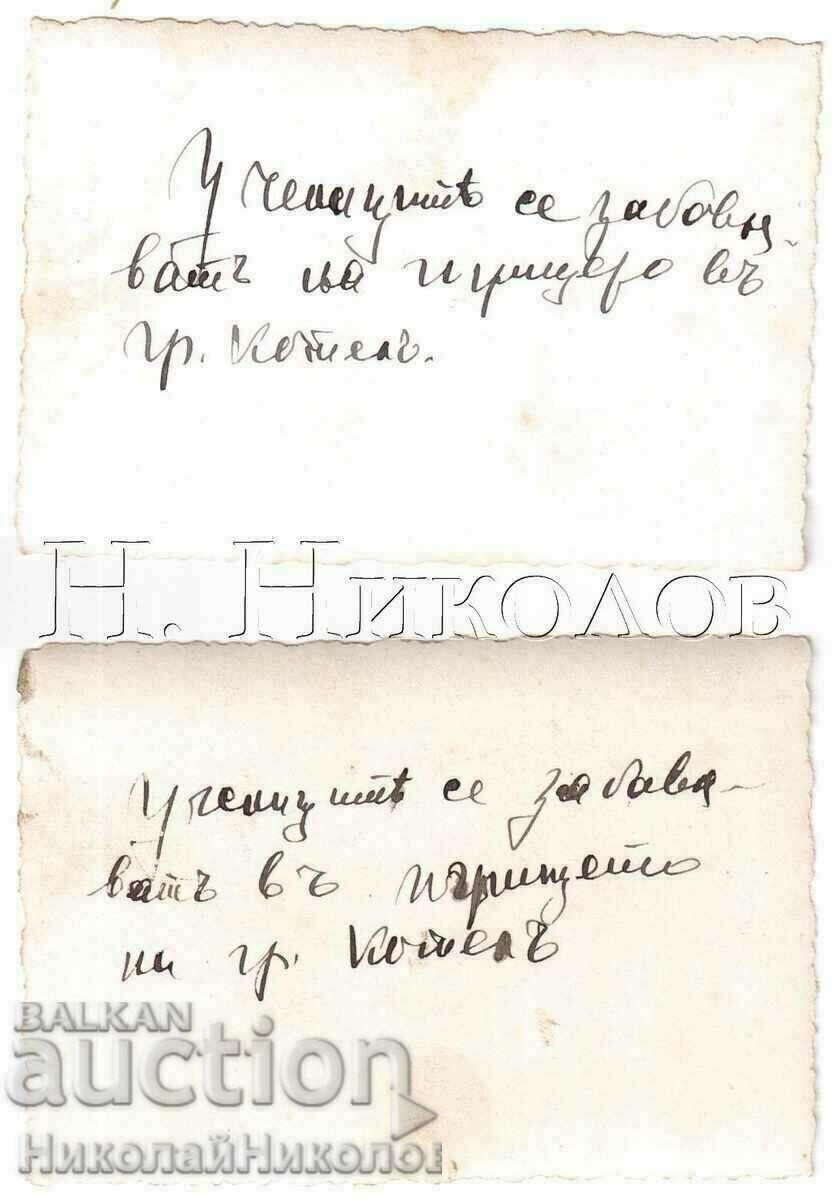 Ученицитѣ се забавля-
ватъ на игрището въ
гр. Котелъ.
Н. Николов
Ученицитѣ се забавля-
ватъ въ игрището
на гр. Котелъ
BALKAN
auction
НиколайНиколов